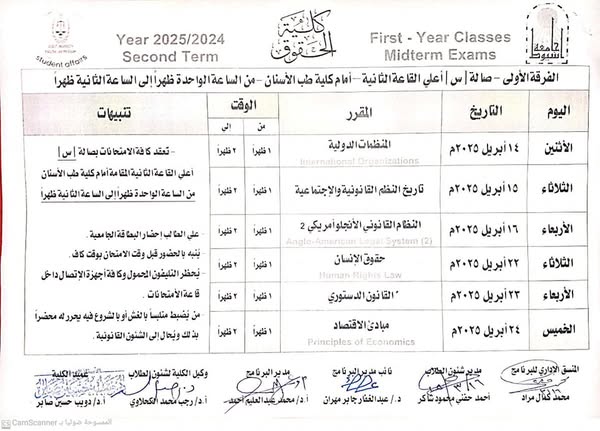 ASSIUT UNIVERSITY
Student affairs
Year 2025/2024
Second Term
كلية
الحقوق
First - Year Classes
Midterm Exams
جامعة
أسيوط
الفرقة الأولى - صالة |س| أعلي القاعة الثانية - أمام كلية طب الأسنان - من الساعة الواحدة ظهراً إلى الساعة الثانية ظهراً
اليوم التاريخ المقرر الوقت تنبيهات
من إلى
الأثنين ١٤ أبريل ٢٠٢٥م المنظمات الدولية ١ ظهراً ٢ ظهراً
International Organizations
الثلاثاء ١٥ أبريل ٢٠٢٥م تاريخ النظم القانونية والإجتماعية ١ ظهراً ٢ ظهراً
الأربعاء ١٦ أبريل ٢٠٢٥م النظام القانوني الأنجلو أمريكي 2 ١ ظهراً ٢ ظهراً
Anglo-American Legal System (2)
الثلاثاء ٢٢ أبريل ٢٠٢٥م حقوق الإنسان ١ ظهراً ٢ ظهراً
Human Rights Law
الأربعاء ٢٣ أبريل ٢٠٢٥م القانون الدستوري ١ ظهراً ٢ ظهراً
الخميس ٢٤ أبريل ٢٠٢٥م مبادئ الاقتصاد ١ ظهراً ٢ ظهراً
Principles of Economics
- تعقد كافة الامتحانات بصالة |س|
أعلي القاعة الثانية المقامة أمام كلية طب الأسنان
من الساعة الواحدة ظهراً إلى الساعة الثانية ظهراً
- علي الطالب إحضار البطاقة الجامعية .
- يُنبه بالحضور قبل وقت الامتحان بوقت كاف .
- يُحظر التليفون المحمول وكافة أجهزة الإتصال داخل
قاعة الأمتحانات .
- من يُضبط متلبساً بالغش أو بالشروع فيه يحرر له محضراً
بذلك ويُحال إلى الشئون القانونية .
المنسق الإداري للبرنامج مدير شئون الطلاب نائب مدير البرنامج مدير البرنامج وكيل الكلية لشئون الطلاب عميد الكلية
محمد كمال مراد أحمد حفني محمود شاكر د. عبدالغفار جابر مهران أ.د/ محمد عبدالعليم أحمد أ.د/ رجب محمد الكحلاوي أ.د/ دويب حسين صابر
CS CamScanner الممسوحة ضوئيا بـ